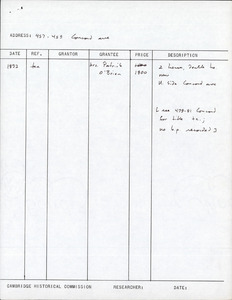 ADDRESS: 457 - 459 Concord Ave
DATE REF. GRANTOR GRANTEE PRICE DESCRIPTION
1872 tax Patrick 2 houses double
O'Brien 1800 new
N. side Concord Ave
[ see 479-81 Concord
for title
no b.p. recorded ]
CAMBRIDGE HISTORICAL COMMISSION RESEARCHER: DATE: